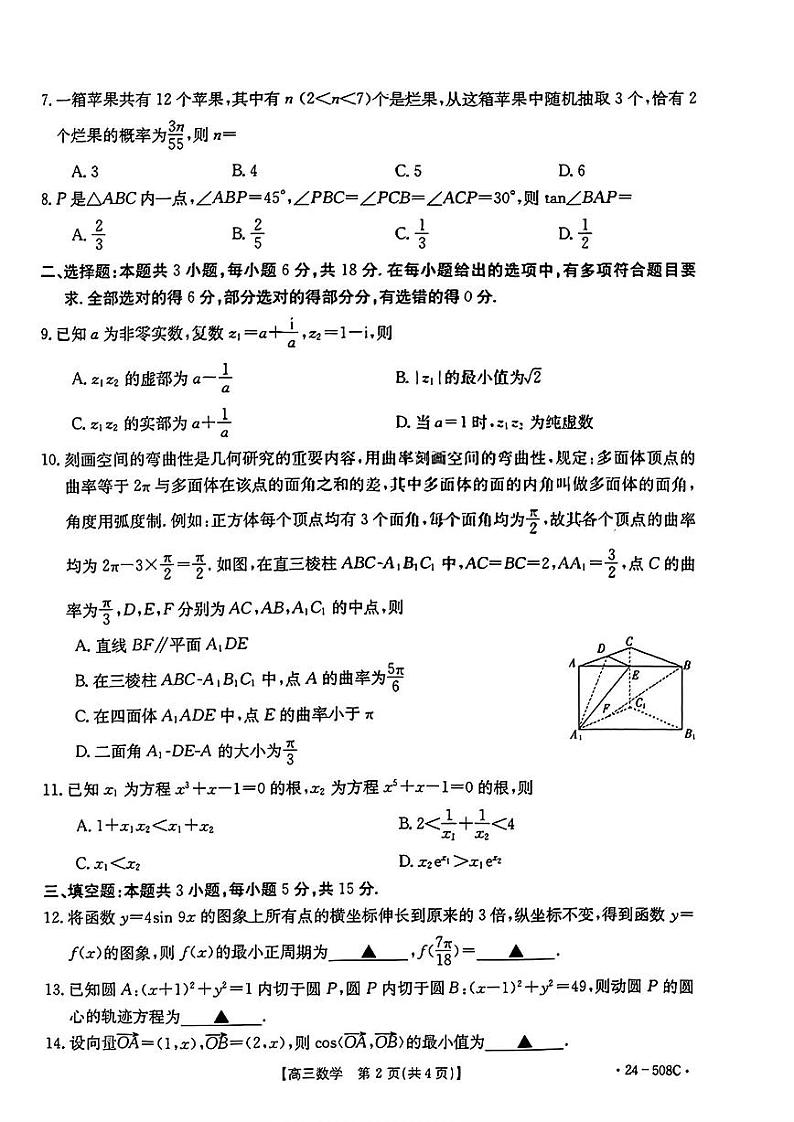 7.一箱苹果共有 12 个苹果,其中有 n (2<n<7)个是烂果,从这箱苹果中随机抽取 3 个,恰有 2
个烂果的概率为3n/55,则 n=
A. 3 B. 4 C. 5 D. 6
8. P 是△ABC 内一点,∠ABP=45°,∠PBC=∠PCB=∠ACP=30°,则 tan∠BAP=
A. 2/3 B. 2/5 C. 1/3 D. 1/2
二、选择题:本题共 3 小题,每小题 6 分,共 18 分. 在每小题给出的选项中,有多项符合题目要
求. 全部选对的得 6 分,部分选对的得部分分,有选错的得 0 分.
9. 已知 a 为非零实数,复数 z₁=a+i/a,z₂=1-i,则
A. z₁z₂ 的虚部为 a-1/a B. |z₁|的最小值为√2
C. z₁z₂ 的实部为 a+1/a D. 当 a=1 时,z₁z₂ 为纯虚数
10. 刻画空间的弯曲性是几何研究的重要内容,用曲率刻画空间的弯曲性,规定:多面体顶点的
曲率等于 2π 与多面体在该点的面角之和的差,其中多面体的面的内角叫做多面体的面角,
角度用弧度制. 例如:正方体每个顶点均有 3 个面角,每个面角均为π/2,故其各个顶点的曲率
均为 2π-3×π/2=π/2. 如图,在直三棱柱 ABC-A₁B₁C₁ 中,AC=BC=2,AA₁=3/2,点 C 的曲
率为π/3,D,E,F 分别为 AC,AB,A₁C₁ 的中点,则
A. 直线 BF∥平面 A₁DE
B. 在三棱柱 ABC-A₁B₁C₁ 中,点 A 的曲率为5π/6
C. 在四面体 A₁ADE 中,点 E 的曲率小于 π
D. 二面角 A₁-DE-A 的大小为π/3
C
D
A
B
E
F
C₁
A₁
B₁
11. 已知 x₁ 为方程 x³+x-1=0 的根,x₂ 为方程 x⁵+x-1=0 的根,则
A. 1+x₁x₂<x₁+x₂ B. 2<1/x₁+1/x₂<4
C. x₁<x₂ D. x₂e^x₁>x₁e^x₂
三、填空题:本题共 3 小题,每小题 5 分,共 15 分.
12. 将函数 y=4sin 9x 的图象上所有点的横坐标伸长到原来的 3 倍,纵坐标不变,得到函数 y=
f(x)的图象,则 f(x)的最小正周期为 ▲ ,f(7π/18)= ▲ .
13. 已知圆 A:(x+1)²+y²=1 内切于圆 P,圆 P 内切于圆 B:(x-1)²+y²=49,则动圆 P 的圆
心的轨迹方程为 ▲ .
14. 设向量OA→=(1,x),OB→=(2,x),则 cos⟨OA→,OB→⟩的最小值为 ▲ .
【高三数学 第 2 页(共 4 页)】 ·24-508C·